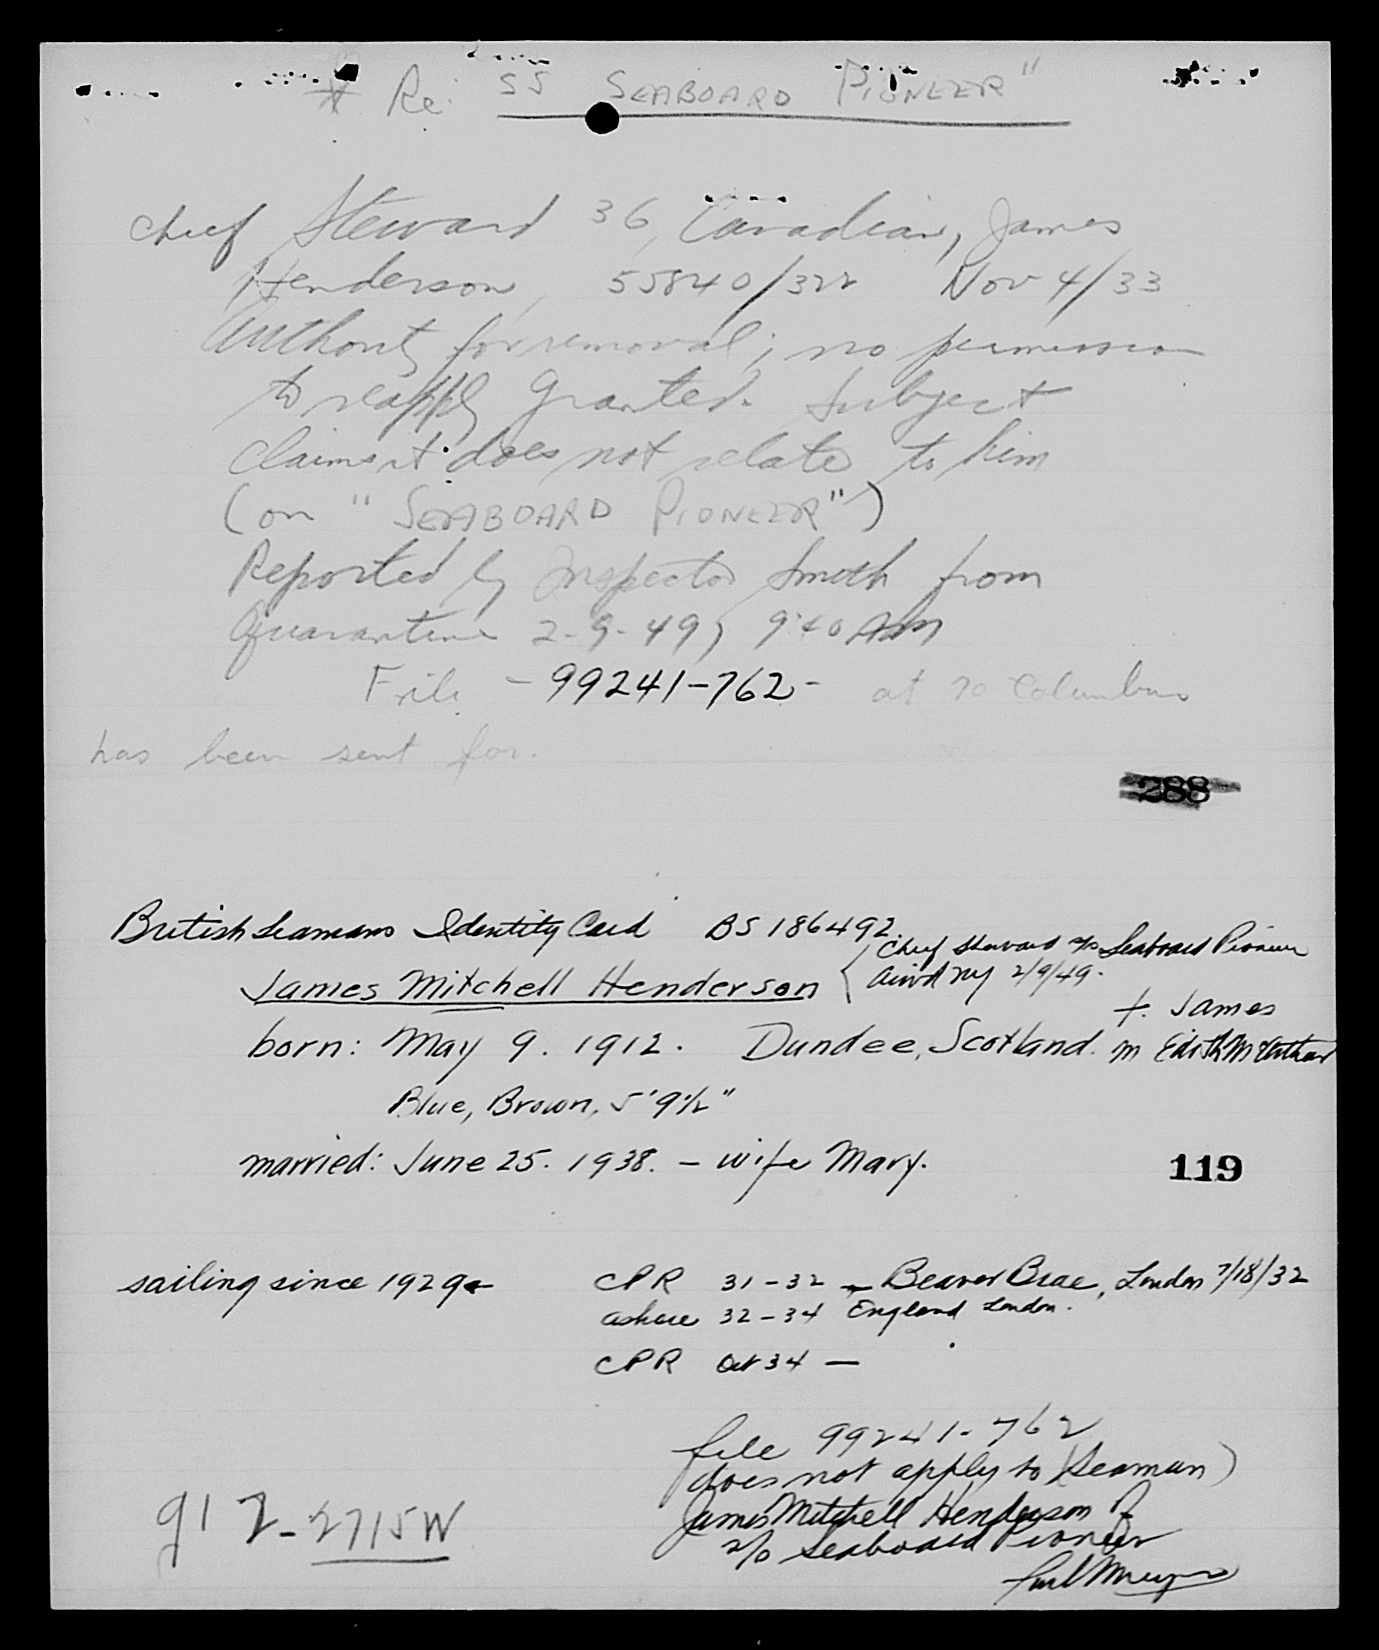 * Re: SS SEABOARD PIONEER"
Chief Steward 36, Canadian, James
Henderson, 55840/322 Nov 4/33
Authority for removal; no permission
to reapply granted. Subject
claims it does not relate to him
(on "SEABOARD PIONEER")
Reported by Inspector Smith from
Quarantine 2-9-49, 9:40 AM
File - 99241-762 - at 70 Columbus
has been sent for.
288
British Seamans Identity Card BS 186492
Chief Steward s/s Seaboard Pioneer
James Mitchell Henderson
arrvd NY 2/9/49.
f. James
born: May 9. 1912. Dundee, Scotland. m Edith McArthur
Blue, Brown, 5' 9 1/2"
married: June 25. 1938. - wife Mary.
119
sailing since 1929
CPR 31-32 - Beaver Brae, London 7/18/32
ashore 32-34 England London.
CPR Oct 34 —
file 99241-762
does not apply to (Seaman)
James Mitchell Henderson
s/o Seaboard Pioneer
912-2715W